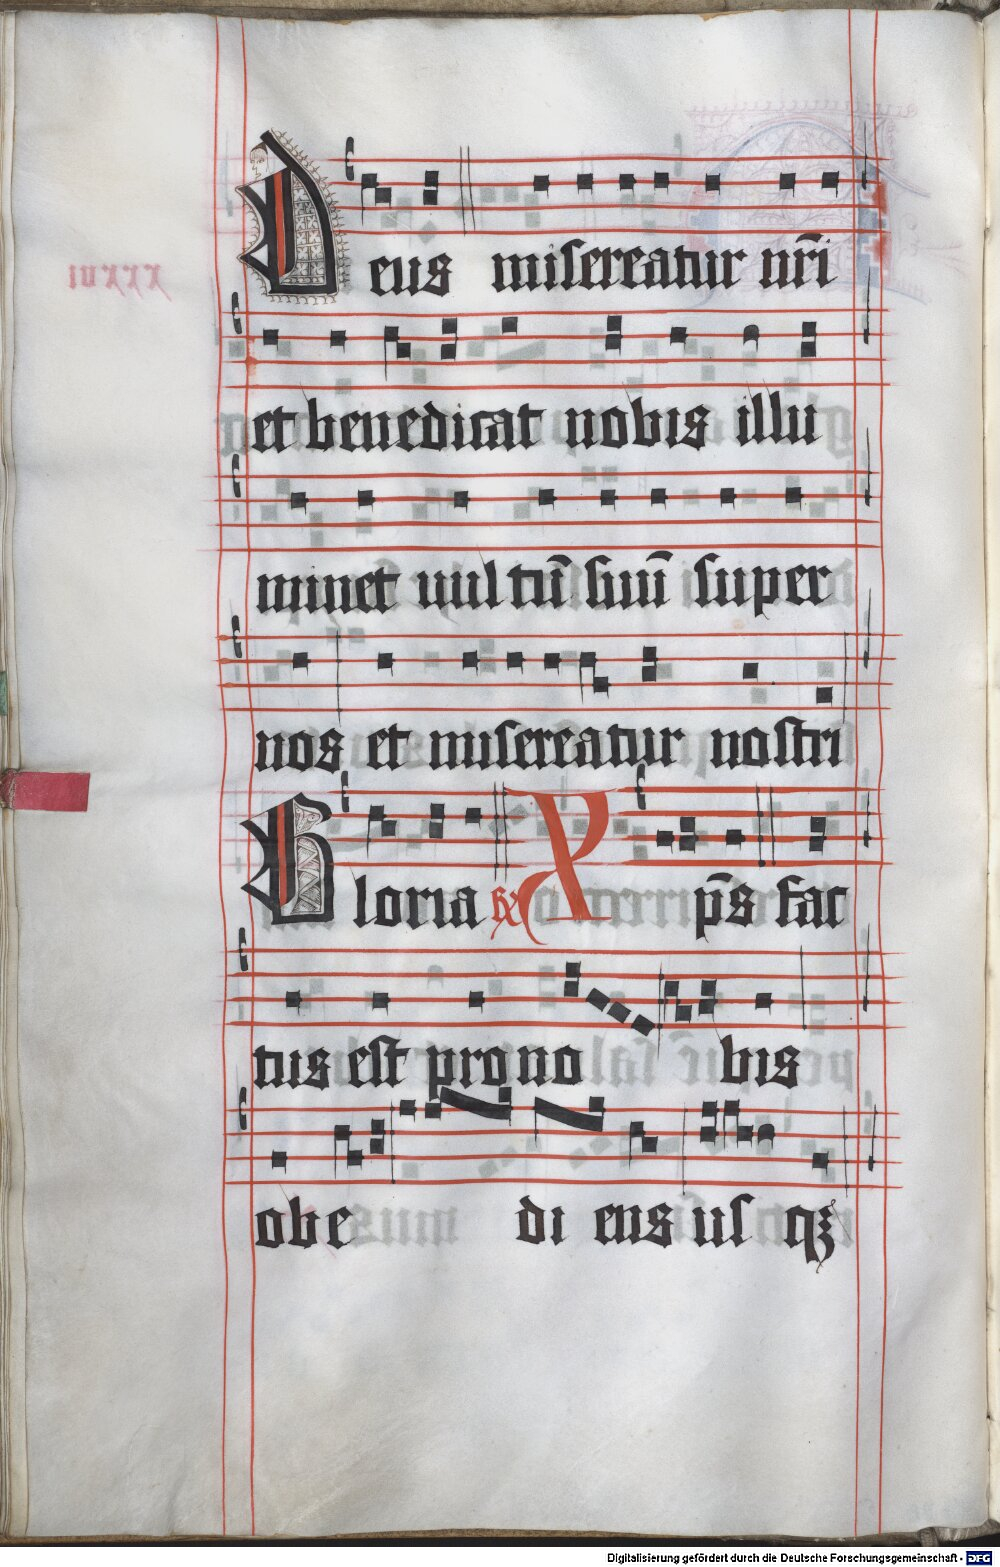 Deus misereatur nr̄i
et benedicat nobis illu
minet uultū suū super
nos et misereatur nostri
Gloria Gͬ Xp̄s fac
tus est pro no bis
obe di ens us qꝫ
Digitalisierung gefördert durch die Deutsche Forschungsgemeinschaft - DFG